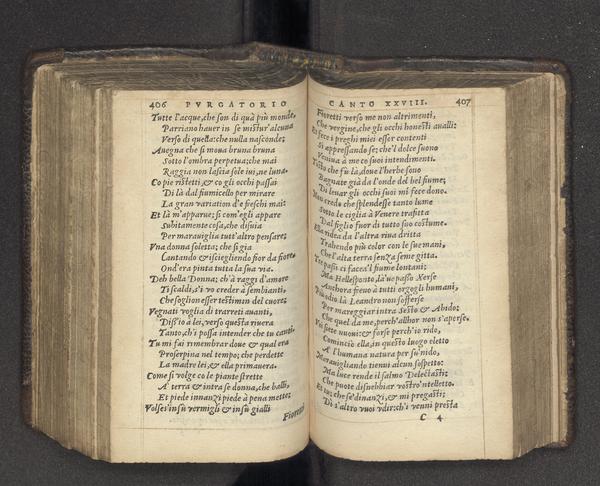 406 PVRGATORIO
Tutte l'acque, che son di quà più monde,
Parriano hauer in se mistur' alcuna
Verso di quella: che nulla nasconde;
Auegna che si moua bruna bruna
Sotto l'ombra perpetua; che mai
Raggio non lascia sole iui, ne luna.
Co pie ristetti, & co gli occhi passai
Di là dal fiumicello per mirare
La gran variation d'e freschi mai:
Et là m'apparue; si com'egli appare
Subitamente cosa, che disuia
Per marauiglia tutt'altro pensare;
Vna donna soletta; che si gia
Cantando & iscieglíendo fior da fiore,
Ond'era pinta tutta la sua via.
Deh bella Donna; ch'à raggi d'amore
Ti scaldi, s'i vo creder à sembianti,
Che soglion esser testimon del cuore;
Vegnati voglia di trarreti auanti,
Diss'io a lei, verso questa riuera
Tanto, ch'i possa intender che tu canti.
Tu mi fai rimembrar doue & qual era
Proserpina nel tempo; che perdette
La madre lei, & ella primauera.
Come si volge co le piante strette
A terra & intra se donna, che balli,
Et piede innanzi piede à pena mette;
Volsesi'n sù vermigli & in sù gialli
Fioretti
CANTO XXVIII. 407
Fioretti verso me non altrimenti,
Che vergine, che gli occhi honesti aualli:
Et fece i preghi miei esser contenti
Si appressando se; che'l dolce suono
Veniua à me co suoi intendimenti.
Tosto che fu là, doue l'herbe sono
Bagnate già da l'onde del bel fiume;
Di leuar gli occhi suoi mi fece dono.
Non credo che splendesse tanto lume
Sotto le ciglia à Venere trafitta
Dal figlio fuor di tutto suo costume.
Ella ridea da l'altra riua dritta
Trahendo più color con le sue mani,
Che l'alta terra senza seme gitta.
Tre passi ci facea'l fiume lontani;
Ma Hellesponto, là'ue passò Xerse
Anchora freno à tutti orgogli humani,
Più odio là Leandro non sofferse
Per mareggiar intra Sesto & Abido;
Che quel da me, perch'allhor non s'aperse.
Voi siete nuoui: & forse perch'io rido,
Cominciò ella, in questo luogo eletto
A l'humana natura per su'nido,
Marauigliando tienui alcun sospetto:
Ma luce rende il salmo Delectasti;
Che puote disnebbiar vostro'ntelletto.
Et tu; che se'dinanzi, & mi pregasti;
Dì s'altro vuoi vdir: ch'i venni presta
C 4